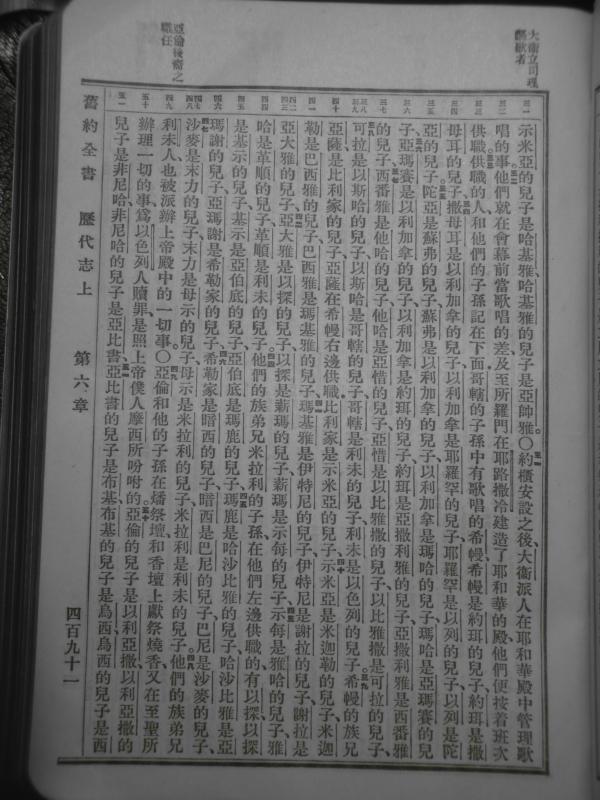 大衛立司理謳歌者
示米亞的兒子是哈基雅、哈基雅的兒子是亞帥雅○約櫃安設之後、大衛派人在耶和華殿中管理歌
唱的事、他們就在會幕前當歌唱的差、及至所羅門在耶路撒冷建造了耶和華的殿、他們便按着班次
供職、供職的人和他們的子孫記在下面、哥轄的子孫中有歌唱的希幔、希幔是約珥的兒子、約珥是撒
母耳的兒子、撒母耳是以利加拿的兒子、以利加拿是耶羅罕的兒子、耶羅罕是以列的兒子、以列是陀
亞的兒子、陀亞是蘇弗的兒子、蘇弗是以利加拿的兒子、以利加拿是瑪哈的兒子、瑪哈是亞瑪賽的兒
子、亞瑪賽是以利加拿的兒子、以利加拿是約珥的兒子、約珥是亞撒利雅的兒子、亞撒利雅是西番雅
的兒子、西番雅是他哈的兒子、他哈是亞惜的兒子、亞惜是以比雅撒的兒子、以比雅撒是可拉的兒子、
可拉是以斯哈的兒子、以斯哈是哥轄的兒子、哥轄是利未的兒子、利未是以色列的兒子、希幔的族兄
亞薩是比利家的兒子、亞薩在希幔右邊供職、比利家是示米亞的兒子、示米亞是米迦勒的兒子、米迦
勒是巴西雅的兒子、巴西雅是瑪基雅的兒子、瑪基雅是伊特尼的兒子、伊特尼是謝拉的兒子、謝拉是
亞大雅的兒子、亞大雅是以探的兒子、以探是薪瑪的兒子、薪瑪是示每的兒子、示每是雅哈的兒子、雅
哈是革順的兒子、革順是利未的兒子、他們的族弟兄米拉利的子孫在他們左邊供職的、有以探、以探
是基示的兒子、基示是亞伯底的兒子、亞伯底是瑪鹿的兒子、瑪鹿是哈沙比雅的兒子、哈沙比雅是亞
瑪謝的兒子、亞瑪謝是希勒家的兒子、希勒家是暗西的兒子、暗西是巴尼的兒子、巴尼是沙麥的兒子、
沙麥是末力的兒子、末力是母示的兒子、母示是米拉利的兒子、米拉利是利未的兒子、他們的族弟兄
利未人也被派辦上帝殿中的一切事○亞倫和他的子孫在燔祭壇和香壇上獻祭燒香、又在至聖所
辦理一切的事、爲以色列人贖罪、是照上帝僕人摩西所吩咐的、亞倫的兒子是以利亞撒、以利亞撒的
兒子是非尼哈、非尼哈的兒子是亞比書、亞比書的兒子是布基、布基的兒子是烏西、烏西的兒子是西
亞倫後裔之職任
舊約全書　歷代志上　第六章　四百九十一